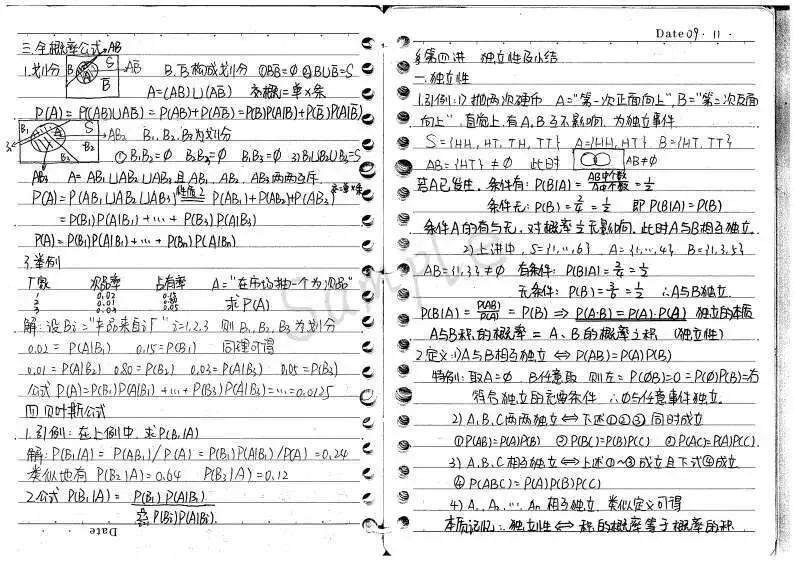 三. 全概率公式
1. 划分 B A S AB̄ B̄ B. B̄构成划分 ①BB̄=∅ ②B∪B̄=S
A=(AB)∪(AB̄)
P(A)=P(AB∪AB̄)=P(AB)+P(AB̄)=P(B)P(A|B)+P(B̄)P(A|B̄)
B₁ A S B₃ B₂ AB₂ B₁, B₂, B₃为划分
①B₁B₂=∅ B₂B₃=∅ B₁B₃=∅ ②B₁∪B₂∪B₃=S
AB₃ A=AB₁∪AB₂∪AB₃ 且AB₁, AB₂, AB₃两两互斥
P(A)=P(AB₁∪AB₂∪AB₃) 性质2 = P(AB₁)+P(AB₂)+P(AB₃)
=P(B₁)P(A|B₁)+…+P(B₃)P(A|B₃)
P(A)=P(B₁)P(A|B₁)+…+P(Bₙ)P(A|Bₙ)
3. 举例
厂数 次品率 占有率 A="在市场抽一个为次品"
1 0.02
2 0.01 0.80 求P(A)
3 0.03 0.05
解: 设Bᵢ="产品来自i厂" i=1,2,3 则B₁, B₂, B₃为划分
0.02=P(A|B₁) 0.15=P(B₁) 同理可得
0.01=P(A|B₂) 0.80=P(B₂) 0.03=P(A|B₃) 0.05=P(B₃)
公式 P(A)=P(B₁)P(A|B₁)+…+P(B₃)P(A|B₃)=…=0.0125
四 贝叶斯公式
1. 引例: 在上例中, 求P(B₁|A)
解: P(B₁|A)=P(AB₁)/P(A)=P(B₁)P(A|B₁)/P(A)=0.24
类似地有 P(B₂|A)=0.64 P(B₃|A)=0.12
2. 公式 P(B₁|A)= P(B₁)P(A|B₁)
ΣP(Bᵢ)P(A|Bᵢ).
Date
Date 09·11
§第四讲 独立性及小结
一. 独立性
1. 引例: 1) 抛两次硬币 A="第一次正面向上", B="第二次反面
向上". 直觉上, 有A, B互不影响, 为独立事件
S={HH, HT, TH, TT} A={HH, HT} B={HT, TT}
AB={HT}≠∅ 此时 AB≠∅
若A已发生. 条件有: P(B|A)= AB中个数/A中个数 = 1/2
条件无: P(B)=2/4=1/2 即P(B|A)=P(B)
条件A的有与无, 对概率无影响. 此时A与B相互独立.
2) 上讲中, S={1,…,6}, A={1,…,4} B={1,3,5}
AB={1,3}≠∅ 有条件: P(B|A)=2/4=1/2
无条件: P(B)=3/6=1/2 ∴A与B独立.
P(B|A)=P(AB)/P(A)=P(B) ⇒ P(A·B)=P(A)·P(A) 独立的本质
A与B积的概率=A、B的概率之积 (独立性)
2. 定义: 1) A与B相互独立 ⇔ P(AB)=P(A)P(B)
特例: 取A=∅ B任意取 则左=P(∅B)=0=P(∅)P(B)=右
符合独立的充要条件 ∴∅与任意事件独立.
2) A, B, C两两独立 ⇔ 下述①②③同时成立
①P(AB)=P(A)P(B) ②P(BC)=P(B)P(C) ③P(AC)=P(A)P(C).
3) A, B, C相互独立 ⇔ 上述①~③成立且下式④成立
④P(ABC)=P(A)P(B)P(C)
4) A₁, A₂, …, Aₙ相互独立. 类似定义可得
本质记忆: 独立性 ⇔ 积的概率等于概率的积.
Sample